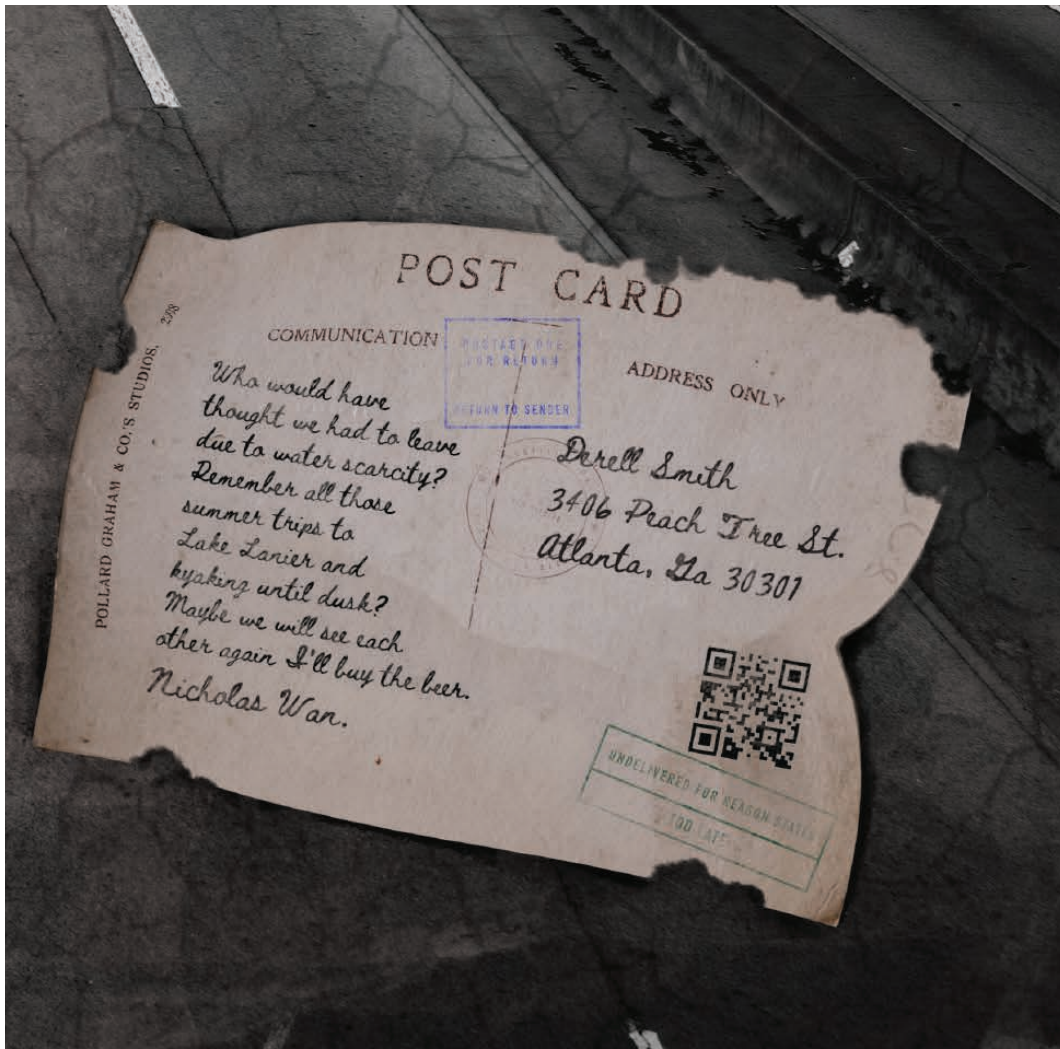 POST CARD
COMMUNICATION
ADDRESS ONLY
POLLARD GRAHAM & CO.'S STUDIOS,
FOR RETURN
RETURN TO SENDER
Who would have
thought we had to leave
due to water scarcity?
Remember all those
summer trips to
Lake Lanier and
kyaking until dusk?
Maybe we will see each
other again I'll buy the beer.
Nicholas Wan.
Derell Smith
3406 Peach Tree St.
Atlanta, Ga 30301
UNDELIVERED FOR REASON STATED
TOO LATE